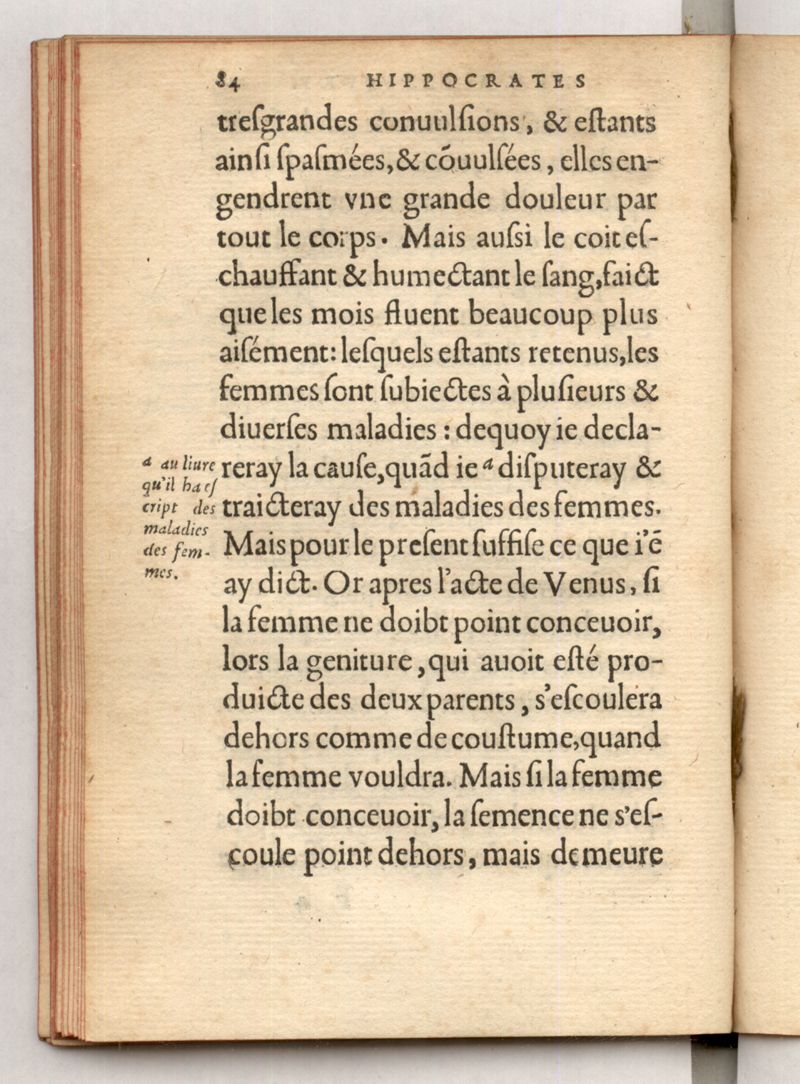 84 HIPPOCRATES
treſgrandes conuulſions, & eſtants
ainſi ſpaſmées, & cōuulſées, elles en-
gendrent vne grande douleur par
tout le corps. Mais auſsi le coit eſ-
chauffant & humectant le ſang, faict
que les mois fluent beaucoup plus
aiſément: leſquels eſtants retenus, les
femmes ſont ſubiectes à pluſieurs &
diuerſes maladies : dequoy ie decla-
reray la cauſe, quād ie a diſputeray &
traicteray des maladies des femmes.
Mais pour le preſent ſuffiſe ce que i'ē
ay dict. Or apres l'acte de Venus, ſi
la femme ne doibt point conceuoir,
lors la geniture, qui auoit eſté pro-
duicte des deux parents, s'eſcoulera
dehors comme de couſtume, quand
la femme vouldra. Mais ſi la femme
doibt conceuoir, la ſemence ne s'eſ-
coule point dehors, mais demeure
a au liure
qu'il ha eſ
cript des
maladies
des fem-
mes.